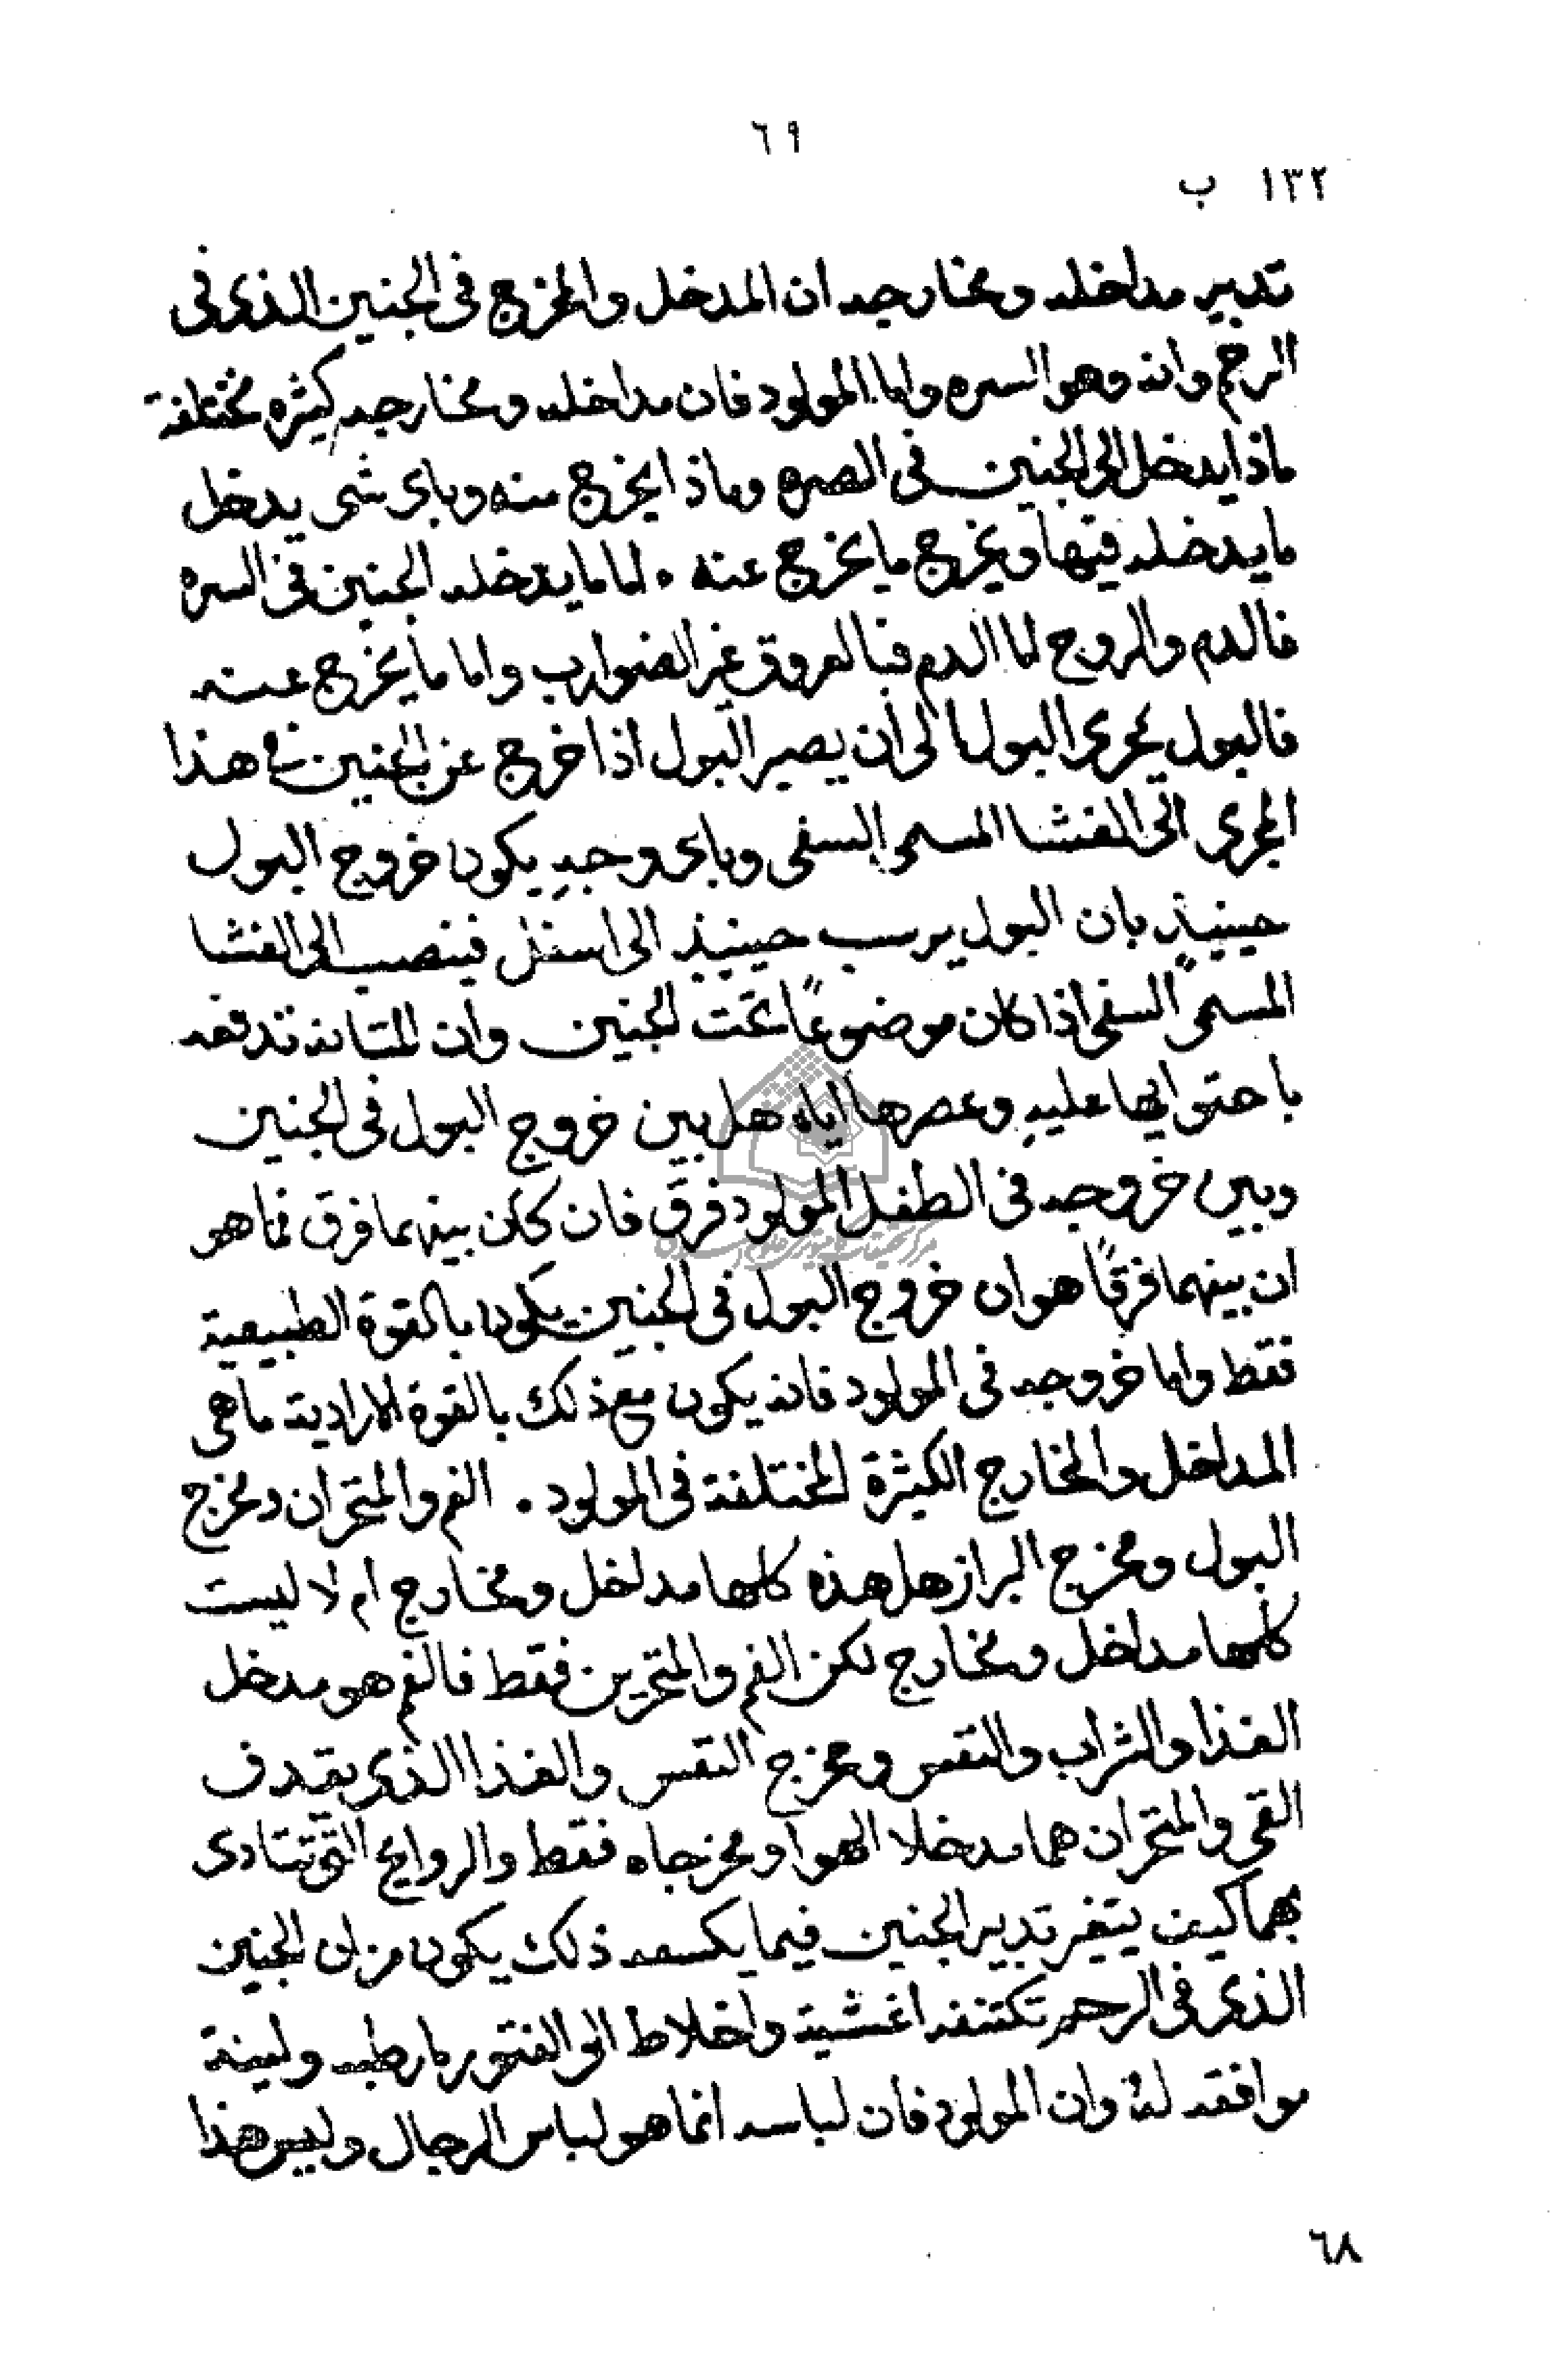 ٦٩
١٣٢ ب
تدبير مداخله ومخارجه ان المدخل والمخرج في الجنين الذي في
الرحم وانه وهو السره واما المولود فان مداخله ومخارجه كثيره مختلفة
ماذا يدخل الى الجنين في الصره وماذا يخرج منه وباى شى يدخل
ما يدخله فيها ويخرج ما يخرج عنه ٠ اما ما يدخله الجنين في السره
فالدم والروح اما الدم فبالعروق غير الضوارب واما ما يخرج عنه
فالبول يجرى البول الى أن يصير البول اذا خرج عن الجنين في هذا
المجرى الى الغشا المسمى السفى وباى وجه يكون خروج البول
حينيذ بان البول يرسب حينيذ الى اسفل فينصب الى الغشا
المسمى السفى اذا كان موضوعًا تحت الجنين وان المثانه تدفعه
باحتوايها عليه وعصرها اياه هل بين خروج البول في الجنين
وبين خروجه في الطفل المولود فرق فان كان بينهما فرق فما هو
ان بينهما فرقًا هو ان خروج البول في الجنين يكون بالقوة الطبيعية
فقط واما خروجه في المولود فانه يكون مع ذلك بالقوة الارادية ما هي
المداخل والمخارج الكثيرة المختلفة في المولود ٠ الفم والمنخران ومخرج
البول ومخرج البراز هل هذه كلها مداخل ومخارج ام لا ليست
كلها مداخل ومخارج لكن الفم والمنخرين فقط فالفم هو مدخل
الغذا والشراب والنفس ومخرج النفس والغذا الذي يقدف
القي والمنخران هما مدخلا الهوا ومخرجاه فقط والروايح التي تتادى
بهما كيف يتغير تدبير الجنين فيما يكسعه ذلك يكون من ان الجنين
الذي في الرحم تكتنفه اغشية واخلاط الى الفتور ما رطبه ولينة
موافقه له وان المولود فان لباسه انما هو لباس الرجال وليس هذا
٦٨